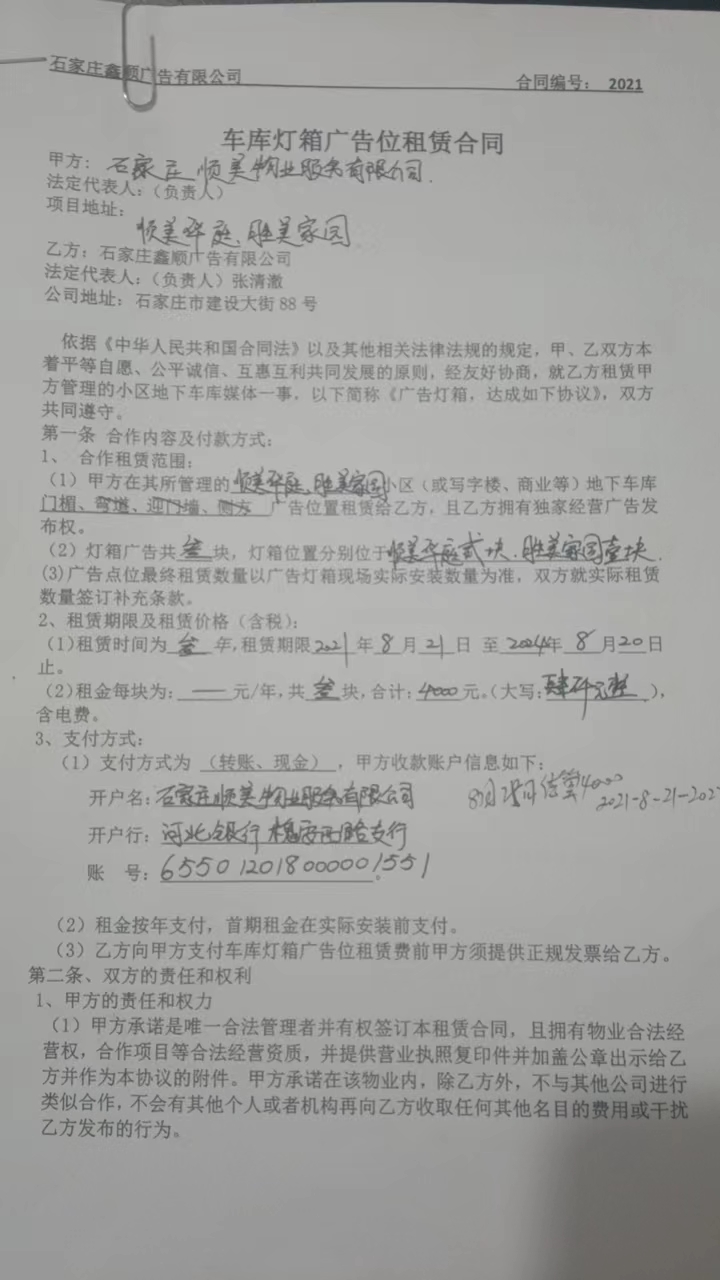 石家庄鑫顺广告有限公司 合同编号： 2021
车库灯箱广告位租赁合同
甲方：石家庄顺美物业服务有限公司.
法定代表人：（负责人）
项目地址：
顺美华庭、胜美家园
乙方：石家庄鑫顺广告有限公司
法定代表人：（负责人）张清澈
公司地址：石家庄市建设大街 88 号
依据《中华人民共和国合同法》以及其他相关法律法规的规定，甲、乙双方本
着平等自愿、公平诚信、互惠互利共同发展的原则，经友好协商，就乙方租赁甲
方管理的小区地下车库媒体一事，以下简称《广告灯箱，达成如下协议》，双方
共同遵守。
第一条 合作内容及付款方式：
1、 合作租赁范围：
（1）甲方在其所管理的顺美华庭、胜美家园小区（或写字楼、商业等）地下车库
门楣、弯道、迎门墙、侧方 广告位置租赁给乙方，且乙方拥有独家经营广告发
布权。
（2）灯箱广告共叁块，灯箱位置分别位于顺美华庭贰块、胜美家园壹块.
(3)广告点位最终租赁数量以广告灯箱现场实际安装数量为准，双方就实际租赁
数量签订补充条款。
2、租赁期限及租赁价格（含税）：
（1)租赁时间为 叁 年，租赁期限2021年 8 月 21 日 至 2024年 8 月20日
止。
（2)租金每块为：— 元/年，共 叁 块，合计：4000 元。（大写：肆仟元整 ），
含电费。
3、支付方式：
（1）支付方式为 （转账、现金） ，甲方收款账户信息如下：
开户名：石家庄顺美物业服务有限公司
8月 4000
2021-8-21-202
开户行：河北银行 槐安西路支行
账 号：6550120180000001551
（2）租金按年支付，首期租金在实际安装前支付。
（3）乙方向甲方支付车库灯箱广告位租赁费前甲方须提供正规发票给乙方。
第二条、双方的责任和权利
1、甲方的责任和权力
（1）甲方承诺是唯一合法管理者并有权签订本租赁合同，且拥有物业合法经
营权，合作项目等合法经营资质，并提供营业执照复印件并加盖公章出示给乙
方并作为本协议的附件。甲方承诺在该物业内，除乙方外，不与其他公司进行
类似合作，不会有其他个人或者机构再向乙方收取任何其他名目的费用或干扰
乙方发布的行为。